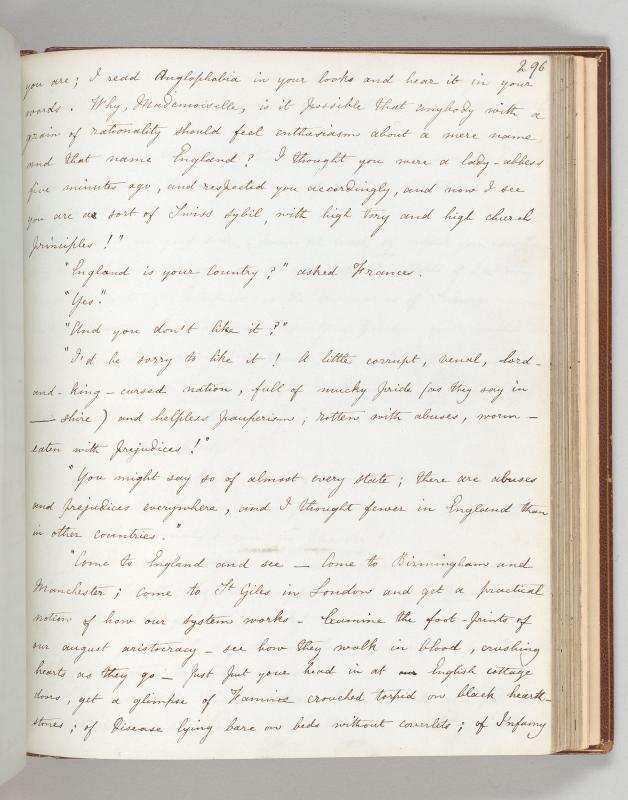 296
you are; I read Anglophobia in your looks and hear it in your
words. Why, Mademoiselle, is it possible that anybody with a
grain of rationality should feel enthusiasm about a mere name
and that name England? I thought you were a lady-abbess
five minutes ago, and respected you accordingly, and now I see
you are a sort of Swiss sybil, with high tory and high church
principles!"
"England is your country?" asked Frances.
"Yes".
"And you don't like it?"
"I'd be sorry to like it! A little corrupt, venal, lord-
and-king-cursed nation, full of mucky pride (as they say in
—shire) and helpless pauperism; rotten with abuses, worm-
eaten with prejudices!"
"You might say so of almost every state; there are abuses
and prejudices everywhere, and I thought fewer in England than
in other countries."
"Come to England and see — Come to Birmingham and
Manchester; come to St Giles in London and get a practical
notion of how our system works - Examine the foot-prints of
our august aristocracy - see how they walk in blood, crushing
hearts as they go - Just put your head in at English cottage
doors, get a glimpse of Famine crouched torpid on black hearth-
stones; of Disease lying bare on beds without coverlets; of Infamy